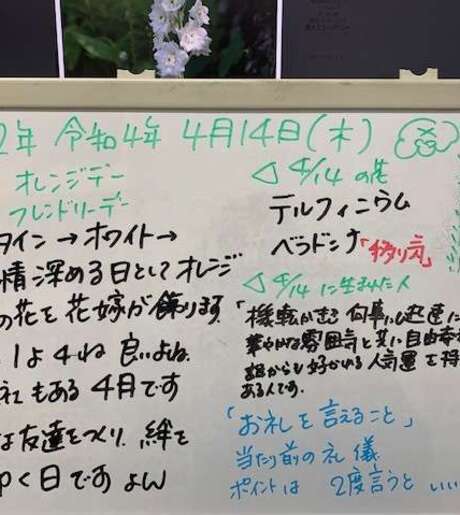 2年 令和4年 4月14日(木)
オレンジデー
フレンドリーデー
タイン→ホワイト→
情深める日としてオレンジ
の花を花嫁が飾ります
1よ4ね 良いよね
社もある4月です
な友達をつくり 絆を
く日ですよん
◁ 4/14 の花
デルフィニウム
ベラドンナ「移り気」
◁ 4/14 に生まれた人
「機転がきき 何事にも迅速に
華やかな雰囲気と共に自由奔
誰からも好かれる人気運を
ある人です。
「お礼を言えること」
当たり前の礼儀
ポイントは 2度言うと いい